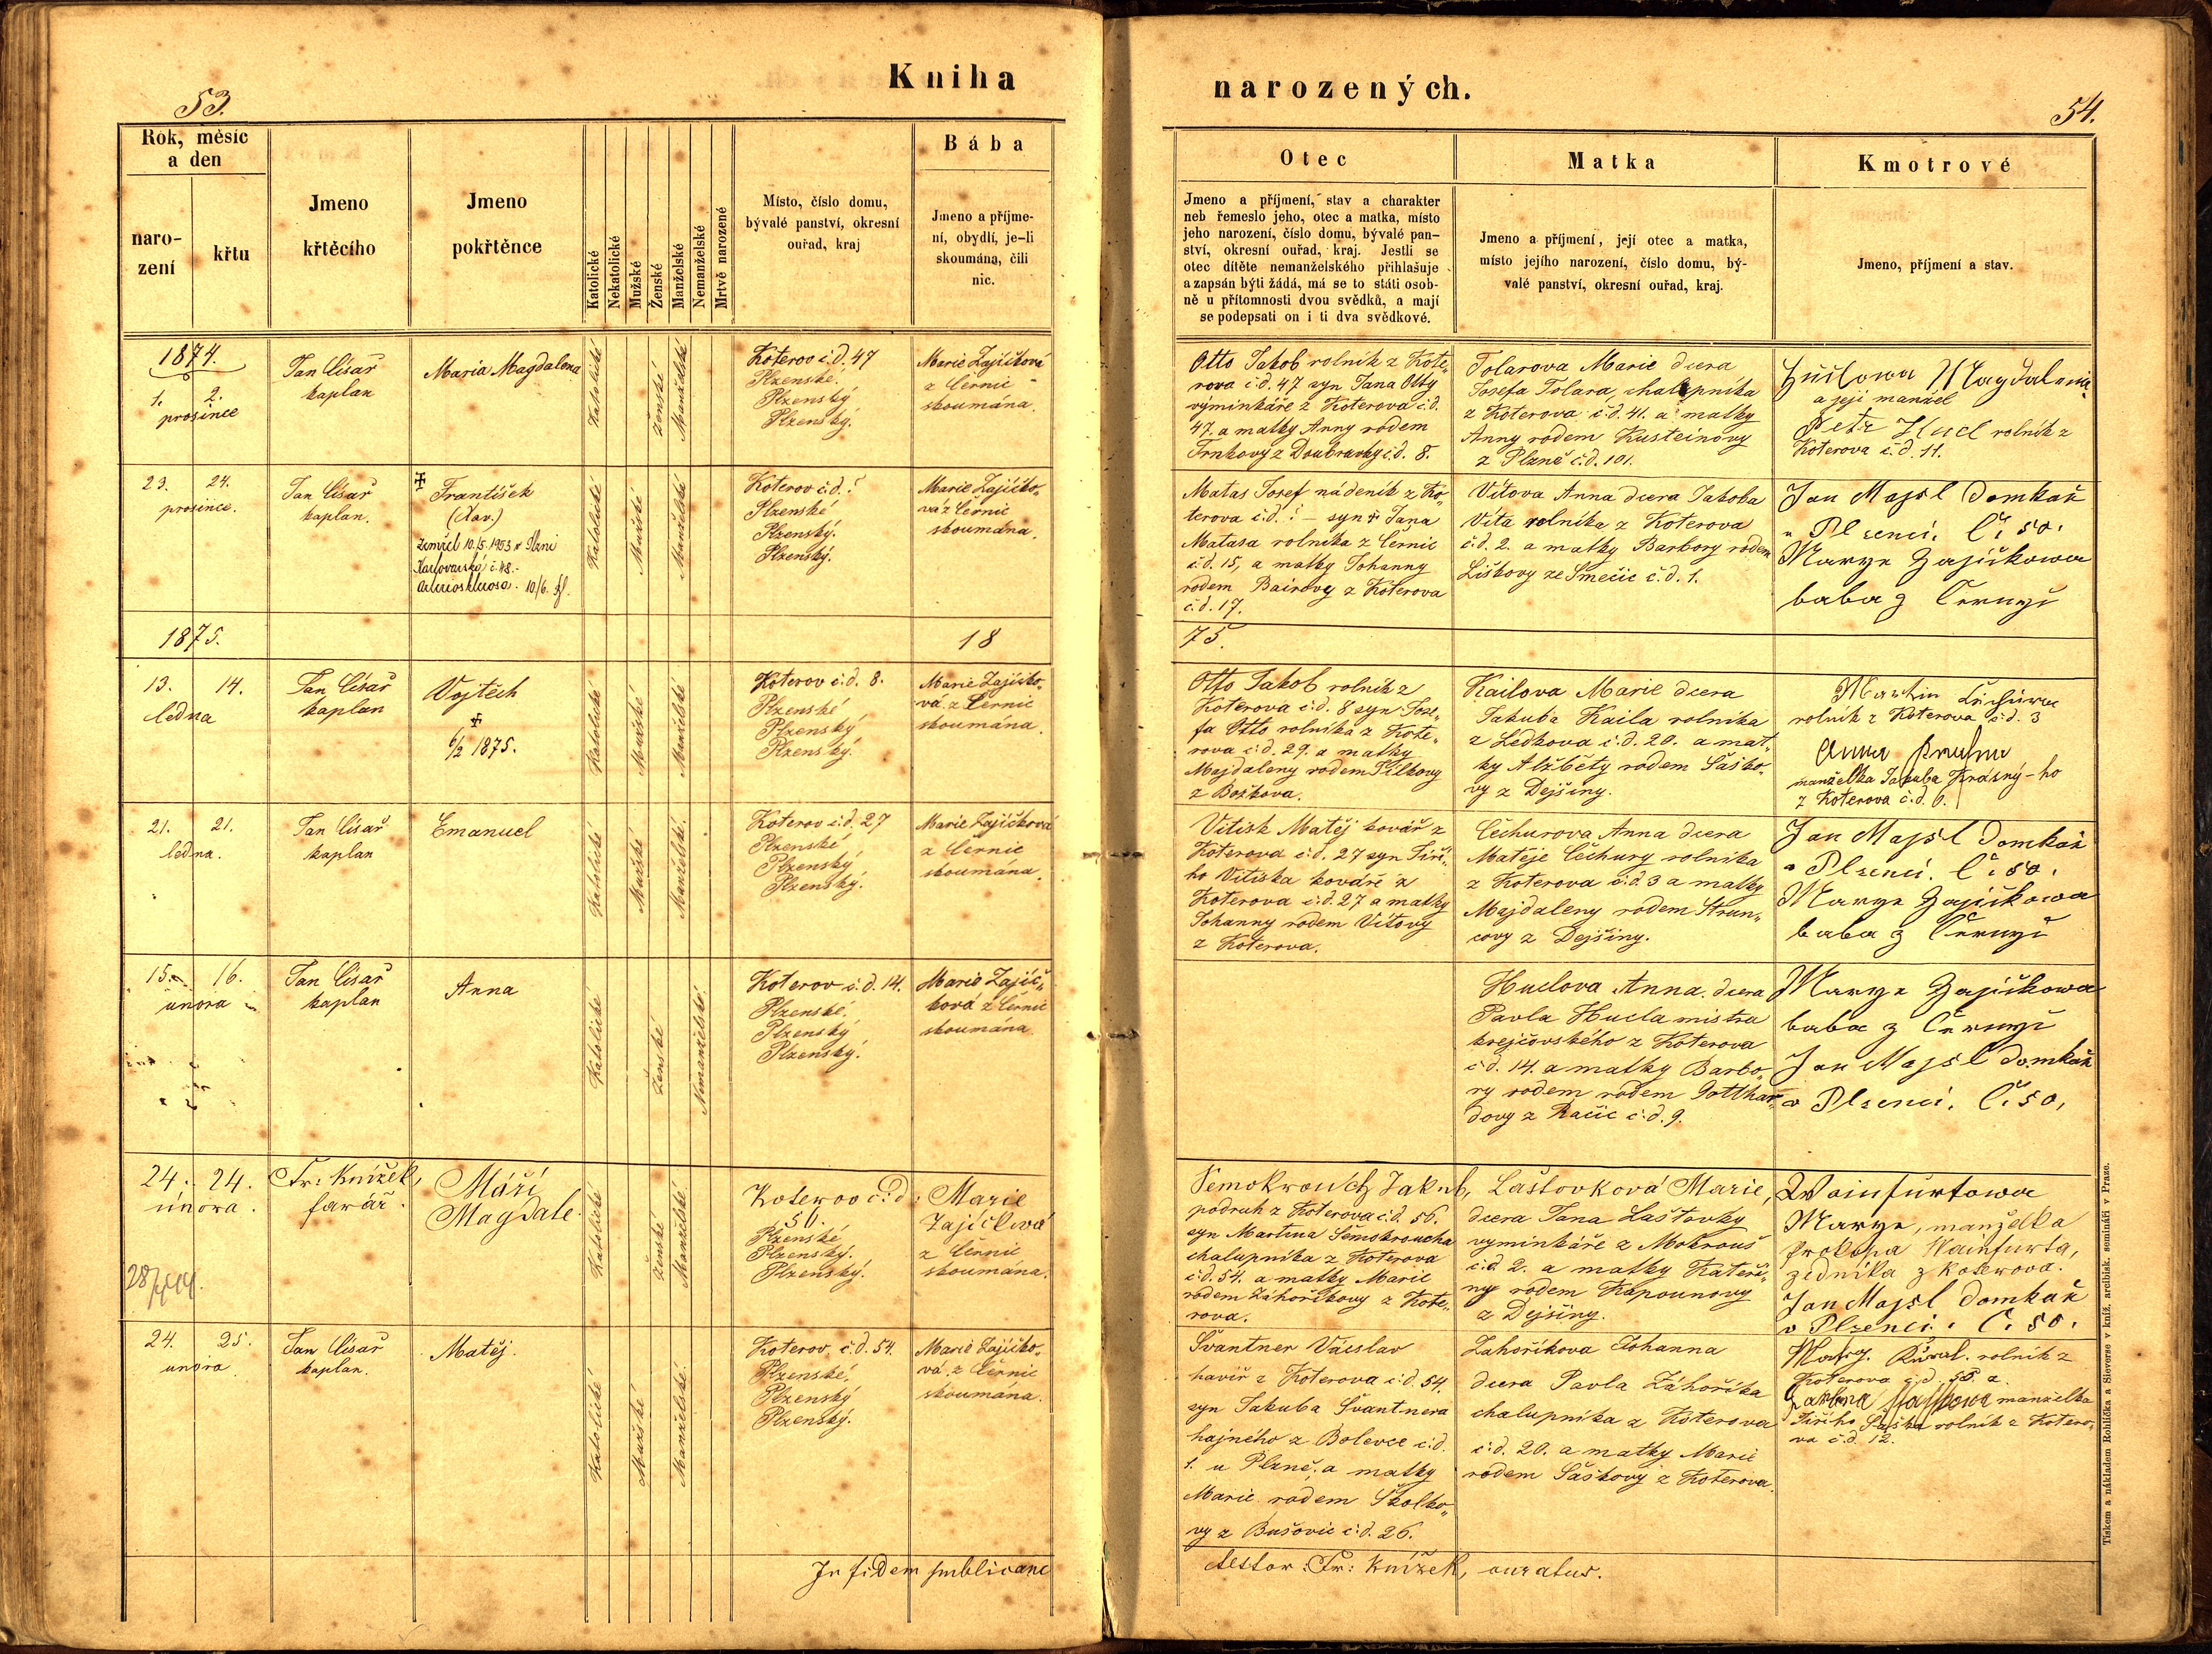 Kniha
53.
Rok, měsíc
a den
naro-
zení
křtu
Jmeno
křtěcího
Jmeno
pokřtěnce
Katolické
Nekatolické
Mužské
Ženské
Manželské
Nemanželské
Mrtvě narozené
Místo, číslo domu,
bývalé panství, okresní
ouřad, kraj
Bába
Jmeno a příjme-
ní, obydlí, je-li
skoumána, čili
nic.
1874.
1. 2.
prosince
Jan Císař
kaplan
Maria Magdalena
Katolické
Ženské
Manželské
Koterov č.d. 47
Plzenské.
Plzenský
Plzenský.
Marie Zajíčková
z Černic
skoumána.
23. 24.
prosince.
Jan Císař
kaplan.
František
(Xav.)
zemřel 10./5. 1953 v Plzni
Karlovarská č. 48.-
10/6.
Katolické
Mužské
Manželské
Koterov č.d. ?
Plzenské
Plzenský.
Plzenský.
Marie Zajíčko„
vá z Černic
skoumána.
1875. 18
13. 14.
ledna
Jan Císař
kaplan
Vojtěch
6/2 1875.
Katolické
Mužské
Manželské
Koterov č.d. 8.
Plzenské
Plzenský
Plzenský.
Marie Zajíčko„
vá z Černic
skoumána.
21. 21.
ledna.
Jan Císař
kaplan
Emanuel
Katolické
Mužské
Manželské
Koterov č.d. 27
Plzenské
Plzenský
Plzenský.
Marie Zajíčková
z Černic
skoumána.
15. 16.
února
Jan Císař
kaplan
Anna
Katolické
Ženské
Nemanželské
Koterov č.d. 14.
Plzenské.
Plzenský
Plzenský.
Marie Zajíč„
ková z Černic
skoumána
24. 24.
února.
28/
Fr: Knížek,
farář.
Máří
Magdale.
Katolické
Ženské
Manželské
Koterov č:d:
56.
Plzenské
Plzenský.
Plzenský.
Marie
Zajíčková
z Černic
skoumána.
24. 25.
února
Jan Císař
kaplan.
Matěj.
Katolické
Mužské
Manželské
Koterov č.d. 54.
Plzenské.
Plzenský
Plzenský.
Marie Zajíčko„
vá z Černic
skoumána.
In fidem publicam
narozených.
54.
Otec
Jmeno a příjmení, stav a charakter
neb řemeslo jeho, otec a matka, místo
jeho narození, číslo domu, bývalé pan-
ství, okresní ouřad, kraj. Jestli se
otec dítěte nemanželského přihlašuje
a zapsán býti žádá, má se to státi osob-
ně u přítomnosti dvou svědků, a mají
se podepsati on i ti dva svědkové.
Matka
Jmeno a příjmení, její otec a matka,
místo jejího narození, číslo domu, bý-
valé panství, okresní ouřad, kraj.
Kmotrové
Jmeno, příjmení a stav.
Otto Jakob rolník z Kote„
rova č.d. 47 syn Jana Otty
výminkáře z Koterova č.d.
47. a matky Anny rodem
Trnkovy z Doubravky č.d. 8.
Tolarova Marie dcera
Josefa Tolara, chalupníka
z Koterova č.d. 41. a matky
Anny rodem Kusteinovy
z Plzně č.d. 101.
Huclowa Magdalena
a její manžel
Petr Hucl rolník z
Koterova č.d. 11.
Matas Josef nádeník z Ko„
terova č.d. ? – syn Jana
Matasa rolníka z Černic
č.d. 15, a matky Johanny
rodem Bairovy z Koterova
č.d. 17.
Vítova Anna dcera Jakoba
Víta rolníka z Koterova
č.d. 2. a matky Barbory rodem
Liškovy ze Smečic č.d. 1.
Jan Majsl Domkař
v Plzenci. Č: 50.
Marye Zajíčkowa
baba z Černyc
75.
Otto Jakob rolník z
Koterova č.d. 8 syn Jose„
fa Otto rolníka z Kote„
rova č.d. 29. a matky
Majdaleny rodem Pilkovy
z Božkova.
Kailova Marie dcera
Jakuba Kaila rolníka
z Ledkova č.d. 20. a mat„
ky Alžběty rodem Šaško„
vy z Dejšiny.
Martin
rolník z Koterova č.d. 3
Anna
manželka Jakuba Krásný-ho
z Koterova č.d. 6.
Vitisk Matěj kovář z
Koterova č.d. 27 syn Jiří„
ho Vitiska kováře z
Koterova č.d. 27 a matky
Johanny rodem Vítovy
z Koterova.
Čechurova Anna dcera
Matěje Čechury rolníka
z Koterova č.d. 3 a matky
Majdaleny rodem Strun„
covy z Dejšiny.
Jan Majsl Domkař
v Plzenci. Č: 50.
Marye Zajíčkowa
baba z Černyc
Huclova Anna. dcera
Pavla Hucla mistra
krejčovského z Koterova
č.d. 14. a matky Barbo„
ry rodem rodem Gotthar„
dovy z Račic č.d. 9.
Marye Zajíčkowa
baba z Černyc
Jan Majsl domkař
v Plzenci. Č. 50,
Šemokrouch Jakub,
podruh z Koterova č.d. 56.
syn Martina Šemokroucha
chalupníka z Koterova
č.d. 54. a matky Marie
rodem Záhoříkovy z Kote„
rova.
Laštovková Marie,
dcera Jana Laštovky
vyminkáře z Mokrouš
č.d. 2. a matky Kateři„
ny rodem Kapounovy
z Dejšiny.
Wainfurtowa
Marye, manželka
Prokopa Wainfurta,
zedníka z Koterova.
Jan Majsl domkař
v Plzenci. Č. 50.
Švantner Václav
havíř z Koterova č.d. 54.
syn Jakuba Švantnera
hajného z Bolevce č.d.
1. u Plzně, a matky
Marie rodem Školko„
vy z Bušovic č.d. 26.
Zahoříkova Johanna
dcera Pavla Záhoříka
chalupníka z Koterova
č.d. 20. a matky Marie
rodem Šaškovy z Koterova.
rolník z
Koterova č.d. 55. a
manželka
Jiřího Šaška rolník z Kotero„
va č.d. 12.
testor: Fr: Knížek, curatus.
Tiskem a nákladem Rohlíčka a Sieverse v kníž. arcibisk. semináři v Praze.